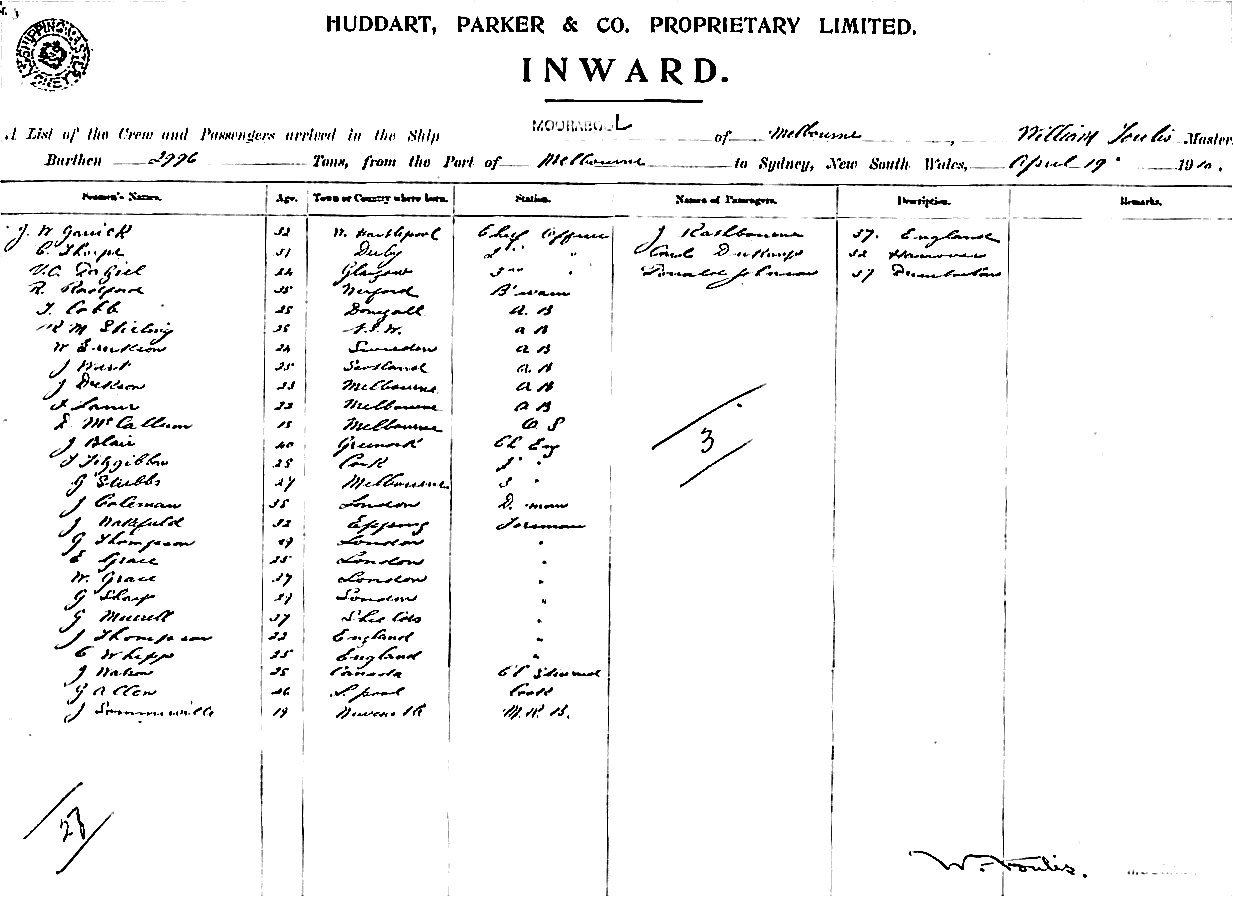 HUDDART, PARKER & CO. PROPRIETARY LIMITED.
INWARD.
A List of the Crew and Passengers arrived in the Ship MOORABOOL of Melbourne, William Foulis Master
Burthen 2996 Tons, from the Port of Melbourne to Sydney, New South Wales, April 19 1910.
Seamen's Names. Age. Town or Country where born. Station. Names of Passengers. Description. Remarks.
J. W Garrick 32 W. Hartlepool Chief Officer J Rathbourne 37. England
C. Thorpe 31 Derby 2nd " Carl 32 Hanover
24 Glasgow 3rd " Donald 37
R. Radford 35 B'swain
T. Cobb 25 Donegall A. B
R M Stirling 26 N.S.W. A B
W 24 Sweden A B
J 25 Scotland A. B
J Dickson 23 Melbourne A B
22 Melbourne A B
E McCallum 18 Melbourne O S
J Blair 40 Greenock Ch Eng
T Fitzgibbon 25 Cork 2 "
G Stubbs 27 Melbourne 3 "
J Coleman 35 London D. man
J Wakefield 32 Epping Fireman
G Thompson 29 London "
E Grace 25 London "
W. Grace 37 London "
G Sharp 27 London "
G 37 Shields "
J Thompson 22 England "
C Whipp 25 England "
J Watson 25 Canada Ch Steward
G Allen 26 L'pool Cook
J Sommerville 19 M. R. B.
3
W. Foulis.